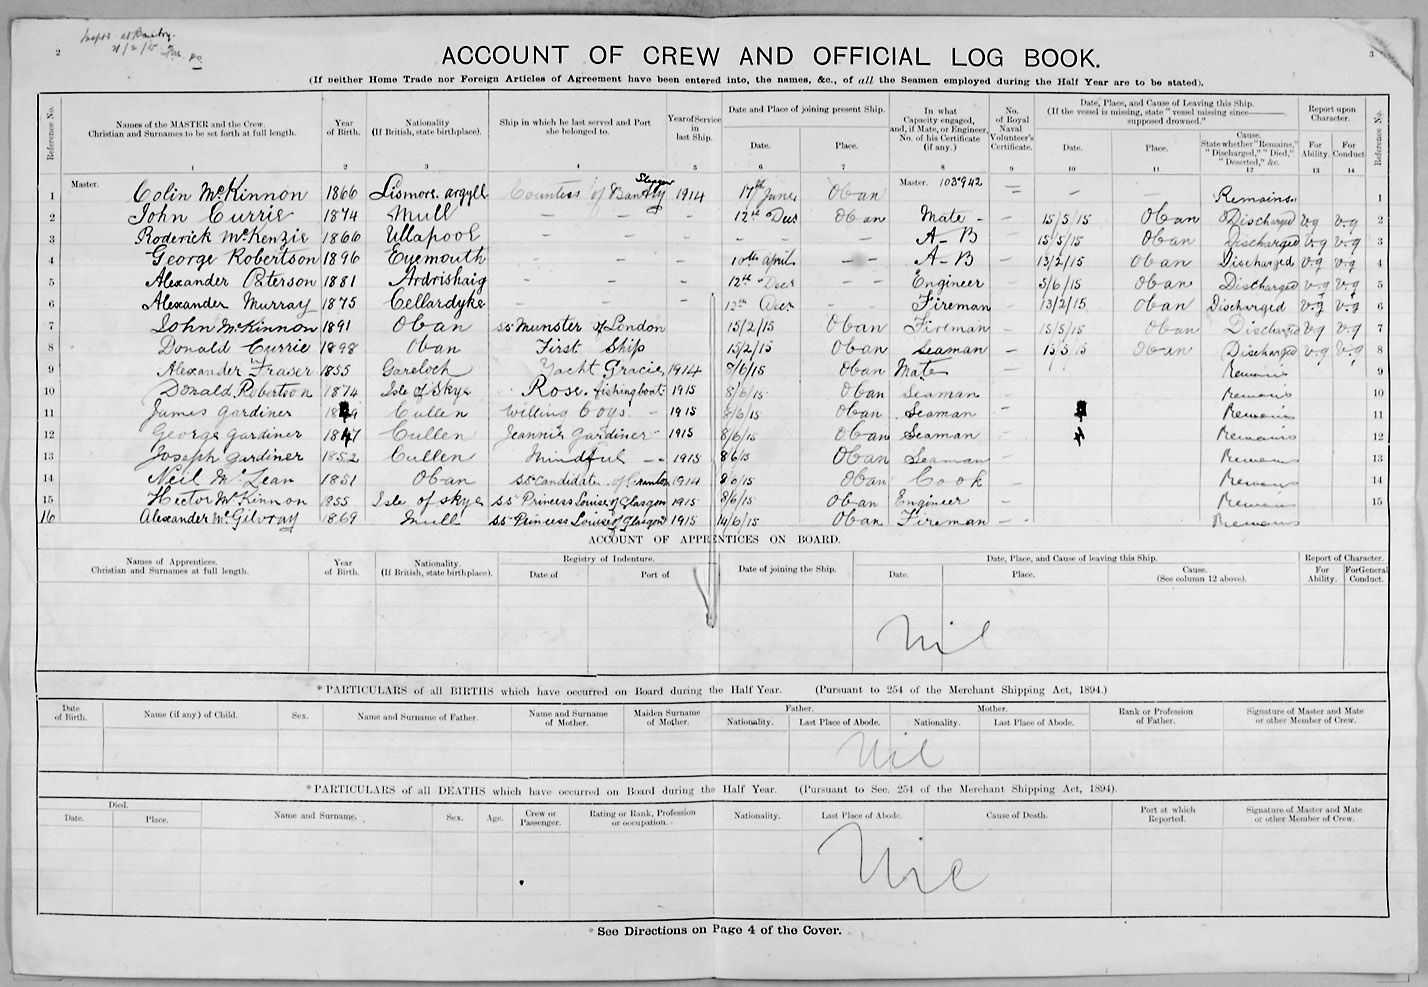 2
3
ACCOUNT OF CREW AND OFFICIAL LOG BOOK.
(If neither Home Trade nor Foreign Articles of Agreement have been entered into, the names, &c., of all the Seamen employed during the Half Year are to be stated).
Reference No. Names of the MASTER and the Crew. Christian and Surnames to be set forth at full length. Year of Birth. Nationality (If British, state birthplace). Ship in which he last served and Port she belonged to. Year of Service in last Ship. Date and Place of joining present Ship. Date. Place. In what Capacity engaged, and, if Mate, or Engineer, No. of his Certificate (if any.) No. of Royal Naval Volunteer's Certificate. Date, Place, and Cause of Leaving this Ship. (If the vessel is missing, state "vessel missing since——, supposed drowned." Date. Place. Cause. State whether "Remains," "Discharged," "Died," "Deserted," &c. Report upon Character. For Ability. For Conduct Reference No.
1 2 3 4 5 6 7 8 9 10 11 12 13 14
1 Master. Colin McKinnon 1866 Lismore. argyll Countess of Bantry 1914 17th June Oban Master. 103942 = — — Remains 1
2 John Currie 1874 Mull — — — 12th Dec Oban Mate - — 15/5/15 Oban Discharged v.g v.g 2
3 Roderick McKenzie 1866 Ullapool — — — — — — — A-B — 15/5/15 Oban Discharged v.g v.g 3
4 George Robertson 1896 Eyemouth — — — 10th april — — A-B — 13/2/15 Oban Discharged v.g v.g 4
5 Alexander Paterson 1881 Ardrishaig — — — 12th Dec — — Engineer — 5/6/15 Oban Discharged v.g v.g 5
6 Alexander Murray 1875 Cellardyke — — — 12th Dec Fireman — 13/2/15 Oban Discharged v.g v.g 6
7 John McKinnon 1891 Oban ss Munster of London 15/2/15 Oban Fireman — 15/5/15 Oban Discharged v.g v.g 7
8 Donald Currie 1898 Oban First Ship 15/2/15 Oban Seaman — 15/5/15 Oban Discharged v.g v.g 8
9 Alexander Fraser 1855 Gareloch Yacht Gracie 1914 8/6/15 Oban Mate — Remains 9
10 Donald Robertson 1874 Isle of Skye Rose. fishing boat 1915 8/6/15 Oban Seaman — Remains 10
11 James Gardiner Cullen Willing Boys — 1915 8/6/15 Oban Seaman — Remains 11
12 George Gardiner 1847 Cullen Jeannie Gardiner - 1915 8/6/15 Oban Seaman — Remains 12
13 Joseph Gardiner 1852 Cullen Mindful — 1915 8/6/15 Oban Seaman — Remains 13
14 Neil McLean 1851 Oban ss Candidate of 1914 8/6/15 Oban Cook — Remains 14
15 Hector McKinnon 1855 Isle of Skye ss Princess Louise of Glasgow 1915 8/6/15 Oban Engineer — Remains 15
16 Alexander McGilvray 1869 Mull ss Princess Louise of Glasgow 1915 14/6/15 Oban Fireman — Remains
ACCOUNT OF APPRENTICES ON BOARD.
Names of Apprentices. Christian and Surnames at full length. Year of Birth. Nationality. (If British, state birthplace). Registry of Indenture. Date of Port of Date of joining the Ship. Date, Place, and Cause of leaving this Ship. Date. Place. Cause. (See column 12 above). Report of Character. For Ability. For General Conduct.
Nil
*PARTICULARS of all BIRTHS which have occurred on Board during the Half Year. (Pursuant to 254 of the Merchant Shipping Act, 1894.)
Date of Birth. Name (if any) of Child. Sex. Name and Surname of Father. Name and Surname of Mother. Maiden Surname of Mother. Father. Nationality. Last Place of Abode. Mother. Nationality. Last Place of Abode. Rank or Profession of Father. Signature of Master and Mate or other Member of Crew.
Nil
*PARTICULARS of all DEATHS which have occurred on Board during the Half Year. (Pursuant to Sec. 254 of the Merchant Shipping Act, 1894).
Died. Date. Place. Name and Surname. Sex. Age. Crew or Passenger. Rating or Rank, Profession or occupation. Nationality. Last Place of Abode. Cause of Death. Port at which Reported. Signature of Master and Mate or other Member of Crew.
Nil
*See Directions on Page 4 of the Cover.